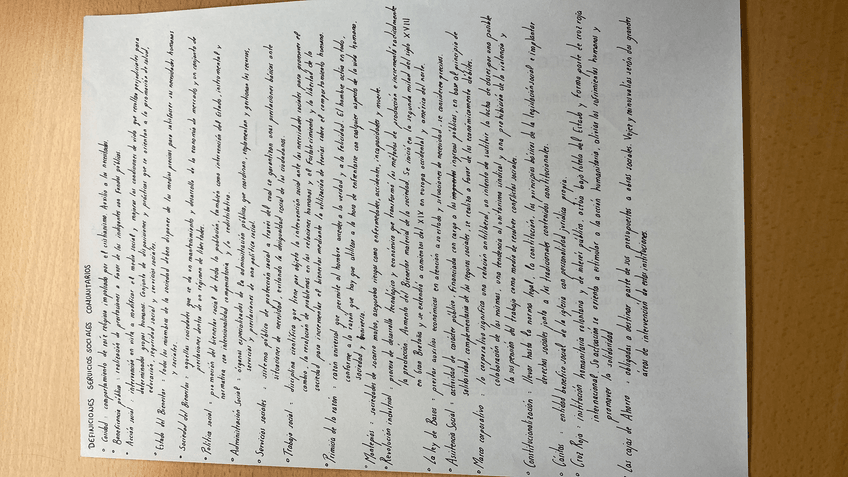 DEFINICIONES SERVICIOS SOCIALES COMUNITARIOS
• Caridad : comportamiento de raíz religiosa impulsado por el cristianismo. Auxilio a los necesitados.
• Beneficencia pública : realización de prestaciones a favor de los indigentes con fondos públicos.
• Acción social : intervención en vista a modificar el medio social y mejorar las condiciones de vida que resultan perjudiciales para
determinados grupos humanos. Conjunto de disposiciones y prácticas que se orientan a la promoción de salud,
educación, seguridad social y servicios sociales.
• Estado del Bienestar : todos los miembros de la sociedad deben disponer de los medios precisos para satisfacer sus necesidades humanas
y sociales.
• Sociedad del Bienestar : aquellas sociedades que se da un mantenimiento y desarrollo de la economía de mercado, y un conjunto de
prestaciones dentro de un régimen de libertades.
• Política social : promoción del bienestar social de toda la población, también como intervención del Estado, instrumental y
normativa con intencionalidad compensatoria y/o redistributiva.
• Administración Social : órganos especializados de la administración pública, que coordinan, reglamentan y gestionan los recursos,
servicios y prestaciones de su política social.
• Servicios sociales : sistema público de protección social a través del cual se garantizan unas prestaciones básicas ante
situaciones de necesidad, evitando la desigualdad social de los ciudadanos.
• Trabajo social : disciplina científica que tiene por objeto la intervención social ante las necesidades sociales para promover el
cambio, la resolución de problemas en las relaciones humanas y el fortalecimiento y la libertad de la
sociedad para incrementar el bienestar mediante la utilización de teorías sobre el comportamiento humano.
• Primicia de la razón : razón universal que permite al hombre acceder a la verdad y a la felicidad. El hombre actúa en todo,
conforme a la razón que hay que utilizar a la hora de enfrentarse con cualquier aspecto de la vida humana,
sociedad y
• Montepíos : sociedades de socorro mutuo, aseguraba riesgos como enfermedades, accidentes, incapacidades y muerte.
• Revolución industrial : proceso de desarrollo tecnológico y económico que transforma los métodos de producción e incrementó radicalmente
la producción. Aumento del Bienestar material de la sociedad. Se inicia en la segunda mitad del siglo XVIII
en Gran Bretaña y se extendió a comienzos del XIX en europa occidental y américa del norte.
• La ley de Bases : prestar auxilios económicos en atención a estados y situaciones de necesidad, se consideren precisos.
• Asistencia Social : actividad de carácter público, financiada con cargo a los ingresos públicos, en base al principio de
solidaridad, complementaria de los seguros sociales, se realiza a favor de los económicamente débiles.
• Marco corporativo : lo corporativo significa una relación antiliberal, un intento de sustituir la lucha de clases por una posible
colaboración de las mismas, una tendencia al unitarismo sindical y una prohibición de la violencia y
la suspensión del trabajo como medio de resolver conflictos sociales.
• Constitucionalización : llevar hasta la norma legal, la constitución, los principios básicos de la legislación social e implantar
derechos sociales junto a los tradicionales contenidos constitucionales.
• Cáritas : entidad benéfico social de la iglesia con personalidad jurídica propia.
• Cruz Roja : institución humanitaria voluntaria y de interés público, actúa bajo tutela del Estado y forma parte de cruz roja
internacional. Su actuación se orienta a estimular a la acción humanitaria, aliviar los sufrimientos humanos y
promover la solidaridad
• Las cajas de Ahorro : obligadas a destinar parte de sus presupuestos a obras sociales. Vejez y minusvalías serán dos grandes
áreas de intervención de estas instituciones.